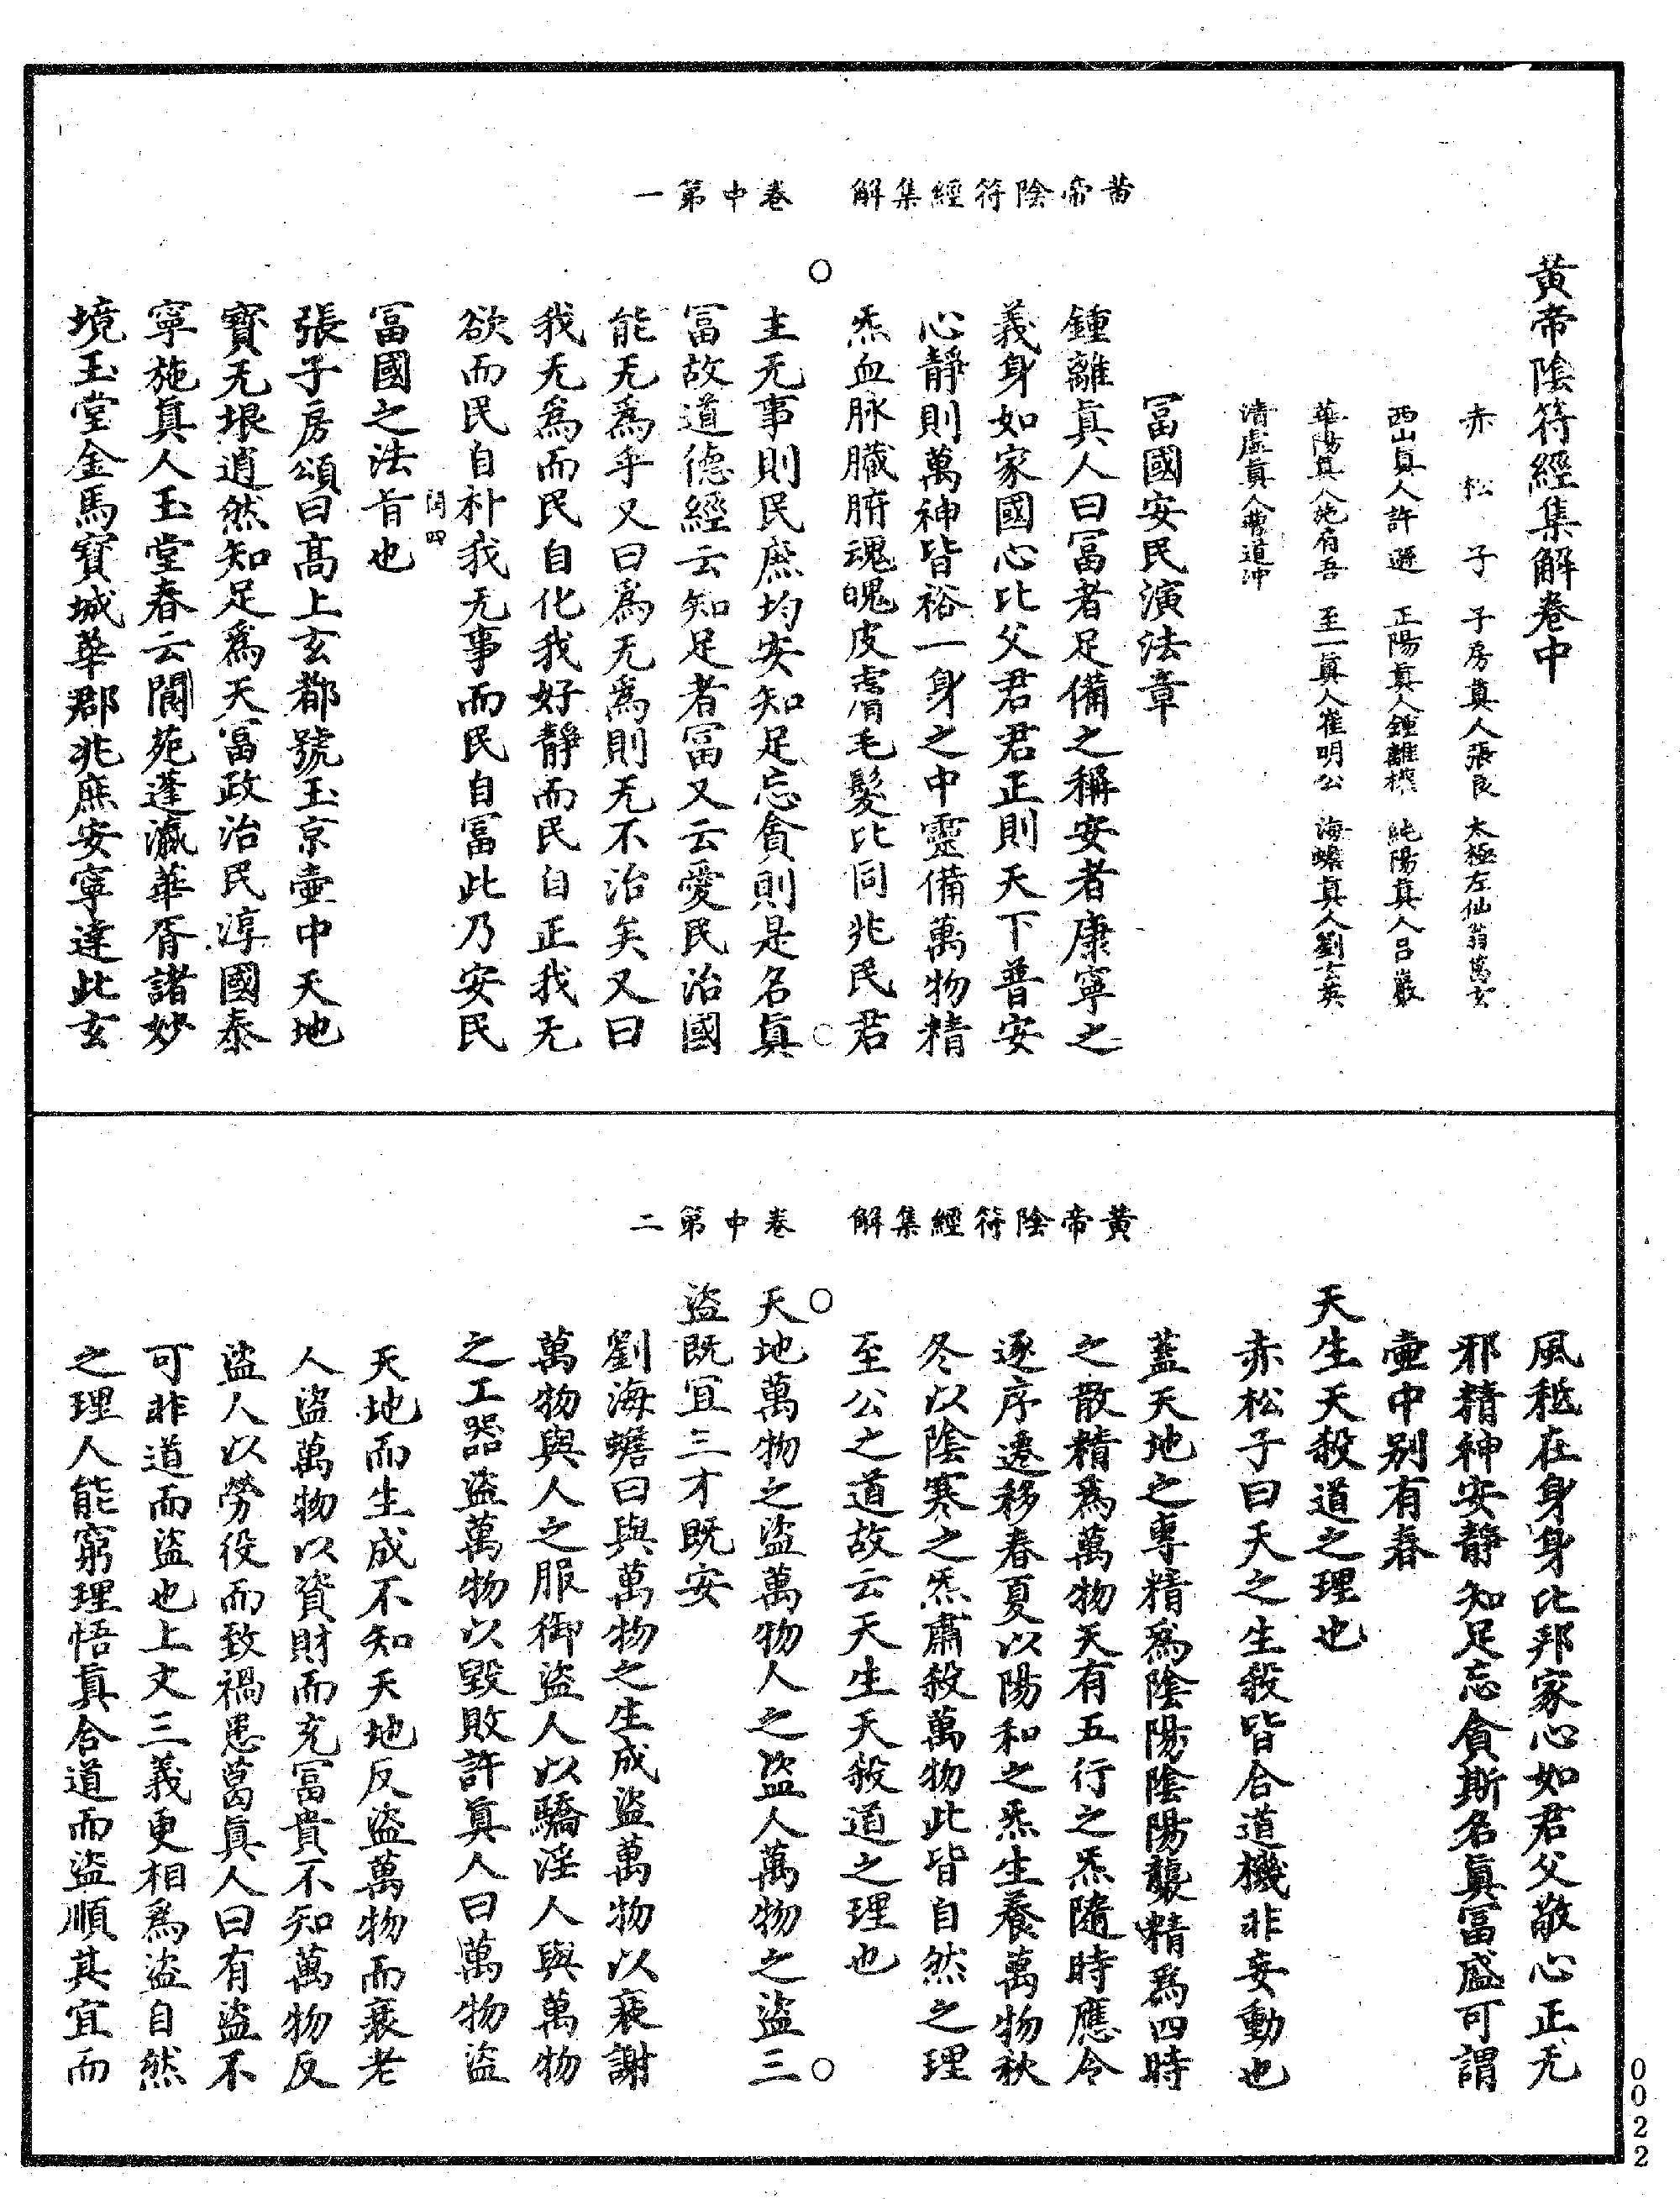 黃帝陰符經集解　卷中第一
黃帝陰符經集解卷中
赤松子　子房真人張良　太極左仙翁葛玄
西山真人許遜　正陽真人鍾離權　純陽真人呂巖
華陽真人施肩吾　至一真人崔明公　海蟾真人劉玄英
清虛真人曹道沖
冨國安民演法章
鍾離真人曰冨者足備之稱安者康寧之
義身如家國心比父君君正則天下普安
心靜則萬神皆裕一身之中靈備萬物精
炁血脉臟腑魂魄皮膚毛髮比同兆民君
主无事則民庶均安知足忘貪則是名真
冨故道德經云知足者冨又云愛民治國
能无爲乎又曰爲无爲則无不治矣又曰
我无爲而民自化我好靜而民自正我无
欲而民自朴我无事而民自冨此乃安民
閏四
冨國之法旨也
張子房頌曰高上玄都號玉京壷中天地
寳无垠逍然知足爲天冨政治民淳國泰
寧施真人玉堂春云閬苑蓬瀛華胥諸妙
境玉堂金馬寳城華郡兆庶安寧達此玄
黃帝陰符經集解　卷中第二
風秪在身身比邦家心如君父敬心正无
邪精神安靜知足忘貪斯名真冨盛可謂
壷中別有春
天生天殺道之理也
赤松子曰天之生殺皆合道機非妄動也
蓋天地之專精爲陰陽陰陽襲精爲四時
之散精爲萬物天有五行之炁隨時應令
逐序遷移春夏以陽和之炁生養萬物秋
冬以陰寒之炁肅殺萬物此皆自然之理
至公之道故云天生天殺道之理也
天地萬物之盜萬物人之盜人萬物之盜三
盜既宜三才既安
劉海蟾曰與萬物之生成盜萬物以衰謝
萬物與人之服御盜人以驕淫人與萬物
之工器盜萬物以毀敗許真人曰萬物盜
天地而生成不知天地反盜萬物而衰老
人盜萬物以資財而充冨貴不知萬物反
盜人以勞役而致禍患葛真人曰有盜不
可非道而盜也上文三義更相爲盜自然
之理人能窮理悟真合道而盜順其宜而
0022